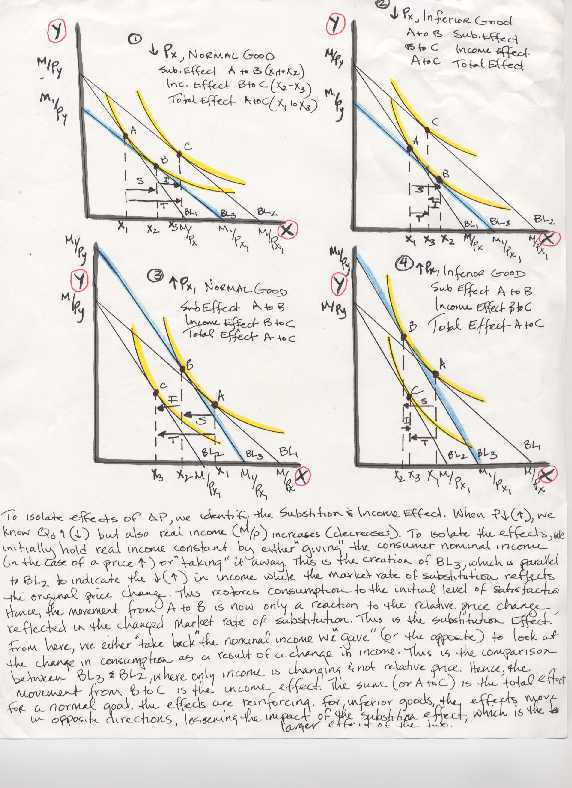 Y
① ↓Px, NORMAL GOOD
Sub. Effect A to B (x1 to x2)
Inc. Effect B to C (x2-x3)
Total Effect A to C (x1 to x3)
M/Py
M1/Py
A
B
C
S
I
T
X1 X2 X3 M/Px M/Px1
BL1 BL3 BL2
X
② ↓Px, Inferior Good
A to B Sub. Effect
B to C Income Effect
A to C Total Effect
Y
M/Py
M1/Py
A
B
C
S
I
T
X1 X3 X2 M/Px M1/Px1 M/Px1
BL1 BL3 BL2
X
M1/Py
Y
M/Py
③ ↑Px, NORMAL GOOD
Sub Effect A to B
Income Effect B to C
Total Effect A to C
B
A
C
I
S
T
BL2 BL3 BL1
X3 X2 X1 M/Px1 M1/Px1 M/Px
X
M1/Py
Y
M/Py
④ ↑Px, Inferior GOOD
Sub Effect A to B
Income Effect B to C
Total Effect - A to C
B
A
C
S
I
T
BL2 BL3 BL1
X2 X3 X1 M/Px1 M1/Px1 M/Px
X
To isolate effects of ΔP, we identify the Substition & Income Effect. When P↓(↑), we
know QD↑(↓) but also real income (M/P) increases (decreases). To isolate the effects, we
initially hold real income constant by either "giving" the consumer nominal income
(in the case of a price ↑) or "taking" it away. This is the creation of BL3, which is parallel
to BL2 to indicate the ↓(↑) in income while the market rate of substitution reflects
the original price change. This restores consumption to the initial level of satisfaction
Hence, the movement from A to B is now only a reaction to the relative price change
reflected in the changed market rate of substitution. This is the substitution Effect.
From here, we either "take back" the nominal income we "gave" (or the opposite) to look at
the change in consumption as a result of a change in income. This is the comparison
between BL3 & BL2, where only income is changing & not relative price. Hence, the
movement from B to C is the income effect. The sum (or A to C) is the total effect
for a normal good, the effects are reinforcing. for inferior goods, the effects move
in opposite directions, lessening the impact of the substition effect, which is the
larger effect of the two.